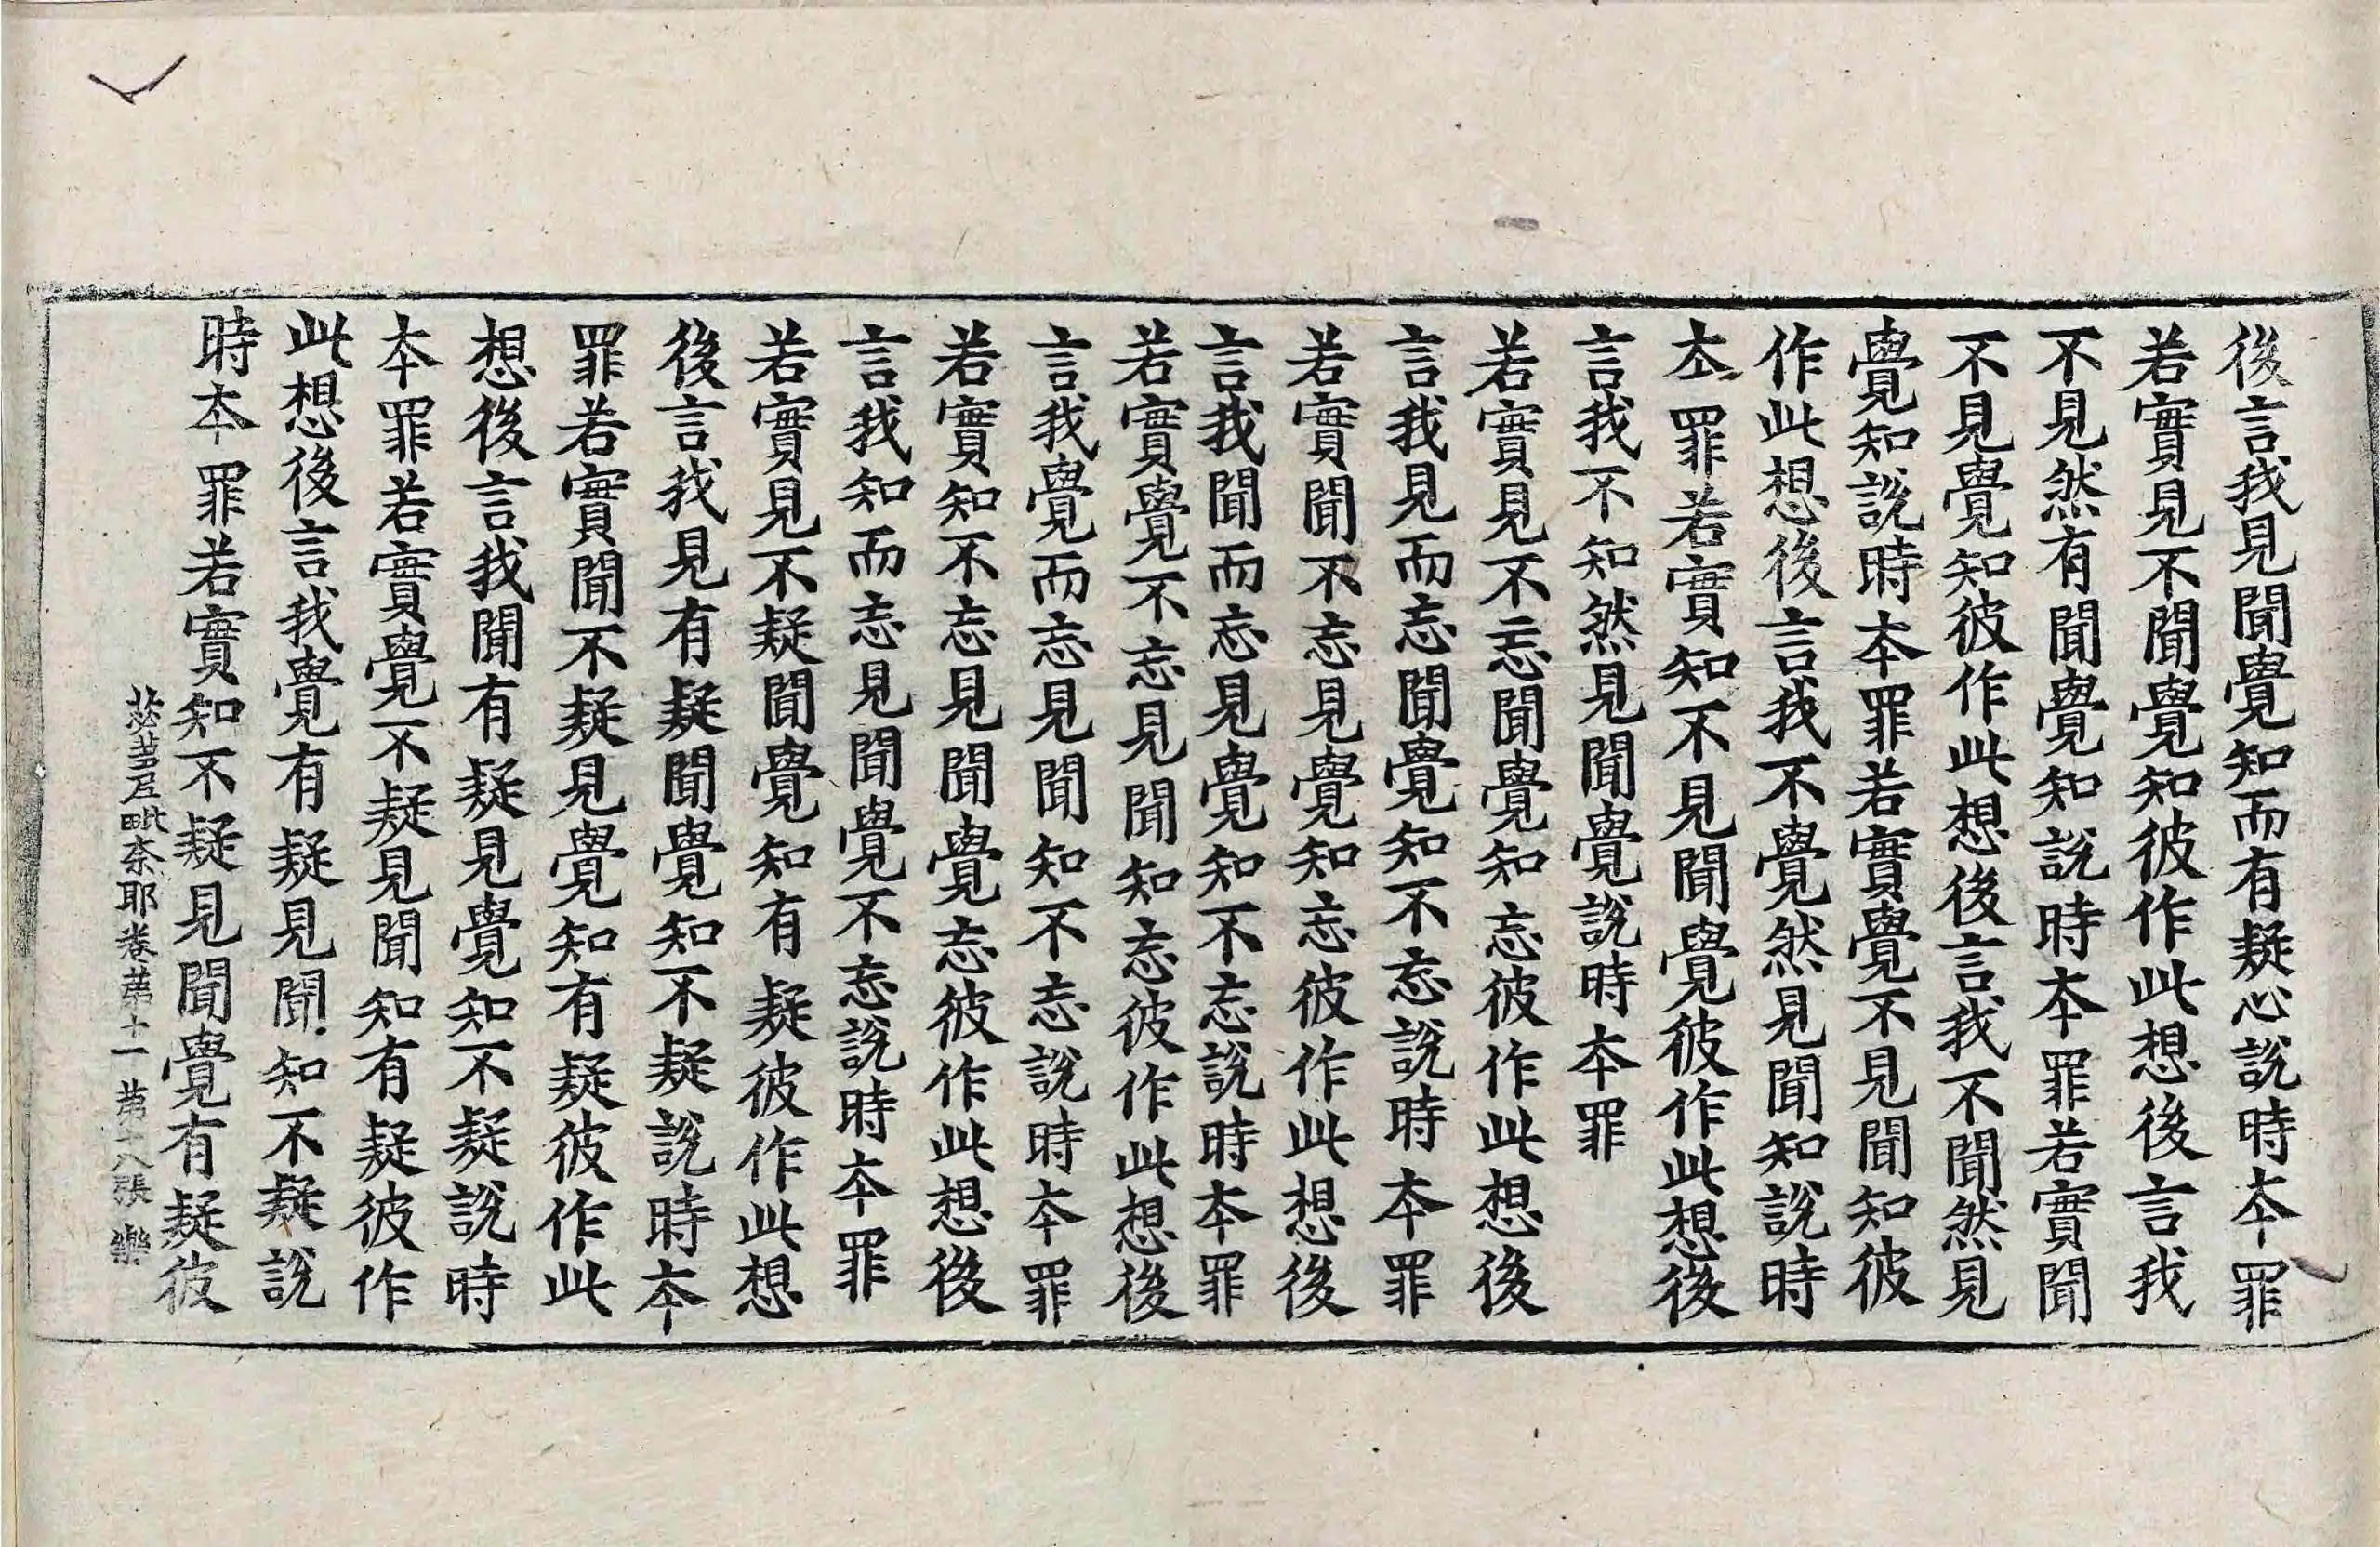 後言我見聞覺知而有疑心說時本罪
若實見不聞覺知彼作此想後言我
不見然有聞覺知說時本罪若實聞
不見覺知彼作此想後言我不聞然見
覺知說時本罪若實覺不見聞知彼
作此想後言我不覺然見聞知說時
本罪若實知不見聞覺彼作此想後
言我不知然見聞覺說時本罪
若實見不忘聞覺知忘彼作此想後
言我見而忘聞覺知不忘說時本罪
若實聞不忘見覺知忘彼作此想後
言我聞而忘見覺知不忘說時本罪
若實覺不忘見聞知忘彼作此想後
言我覺而忘見聞知不忘說時本罪
若實知不忘見聞覺忘彼作此想後
言我知而忘見聞覺不忘說時本罪
若實見不疑聞覺知有疑彼作此想
後言我見有疑聞覺知不疑說時本
罪若實聞不疑見覺知有疑彼作此
想後言我聞有疑見覺知不疑說時
本罪若實覺不疑見聞知有疑彼作
此想後言我覺有疑見聞知不疑說
時本罪若實知不疑見聞覺有疑彼
苾蒭尼毗柰耶卷第十一 第十八張 樂